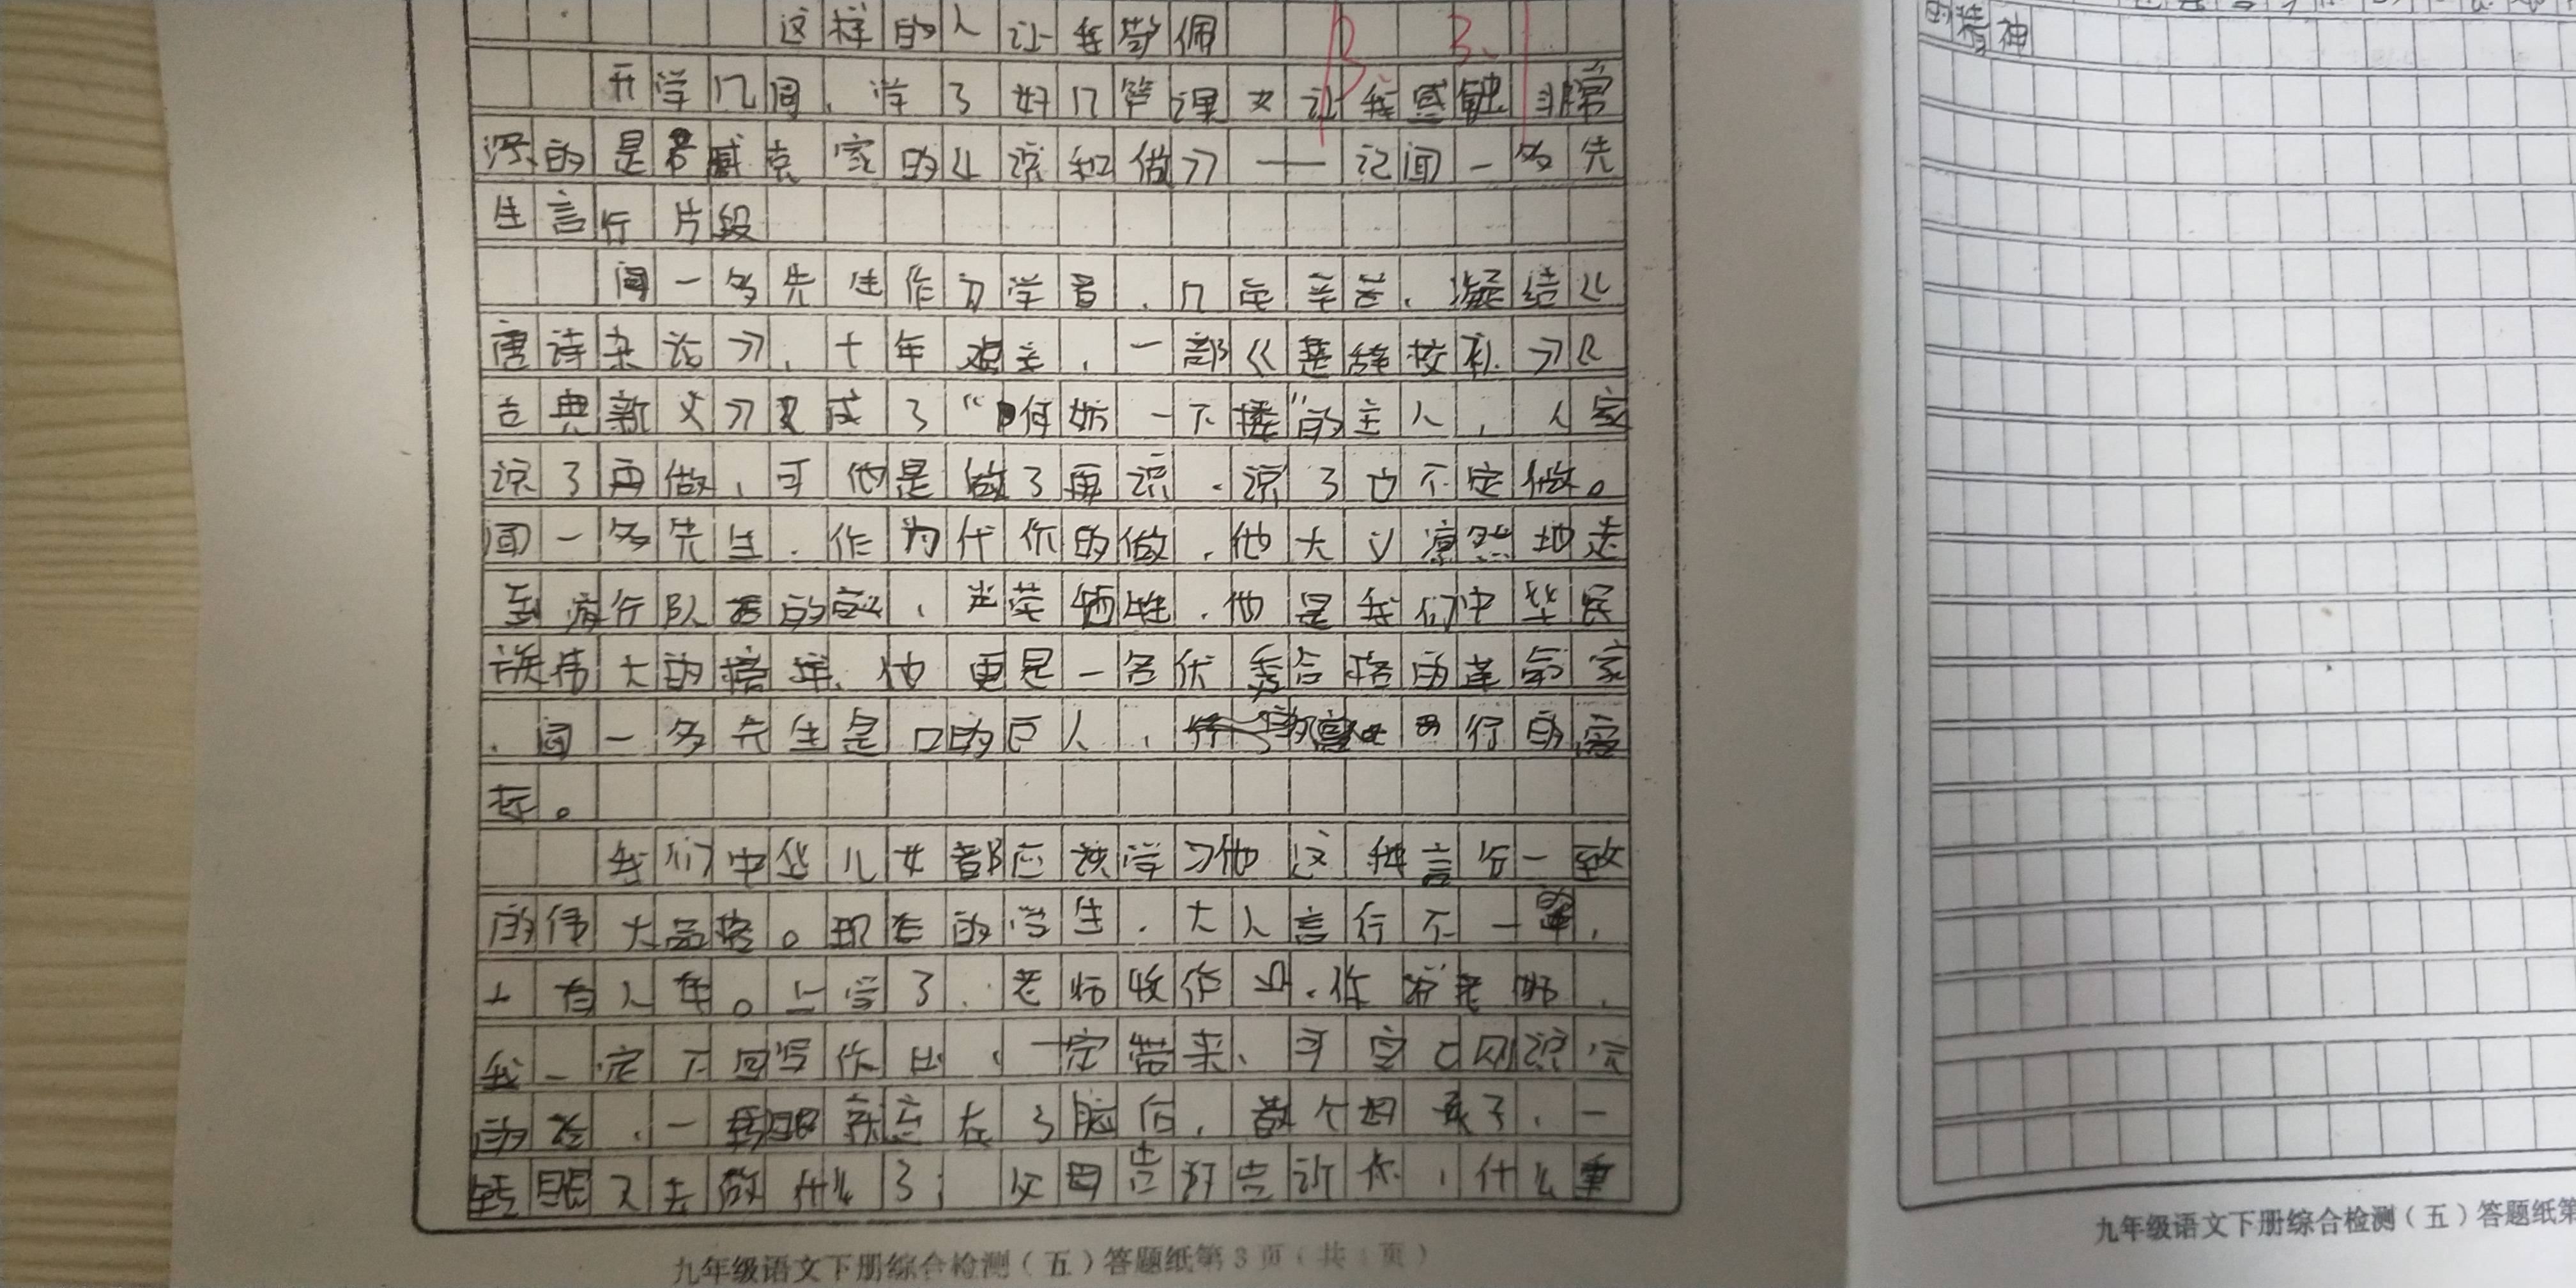 这样的人让我敬佩
开学几周,学了好几篇课文让我感触非常
深的是臧克家的《说和做》——记闻一多先
生言行片段
闻一多先生作为学者,几年辛苦,凝结《
唐诗杂论》,十年艰辛,一部《楚辞校补》《
古典新义》又成了“何妨一下楼”的主人,人家
说了再做,可他是做了再说,说了也不定做。
闻一多先生,作为代你的做,他大义凛然地走
到游行队伍的前,光荣牺牲,他是我们中华民
族伟大的,他更是一名优秀合格的革命家
,闻一多先生是口的巨人,行的高
标。
我们中华儿女都应该学习他这种言行一致
的伟大品格。现在的学生,大人言行不一,
大有人在。上学了,老师收作业,你老师,
我一定下回写作业,一定带来,可空口说完
的话,一转眼就忘在了脑后,
转眼又去做什么了;父母告诉你,什么重
的精神
九年级语文下册综合检测(五)答题纸第3页(共4页)
九年级语文下册综合检测(五)答题纸第